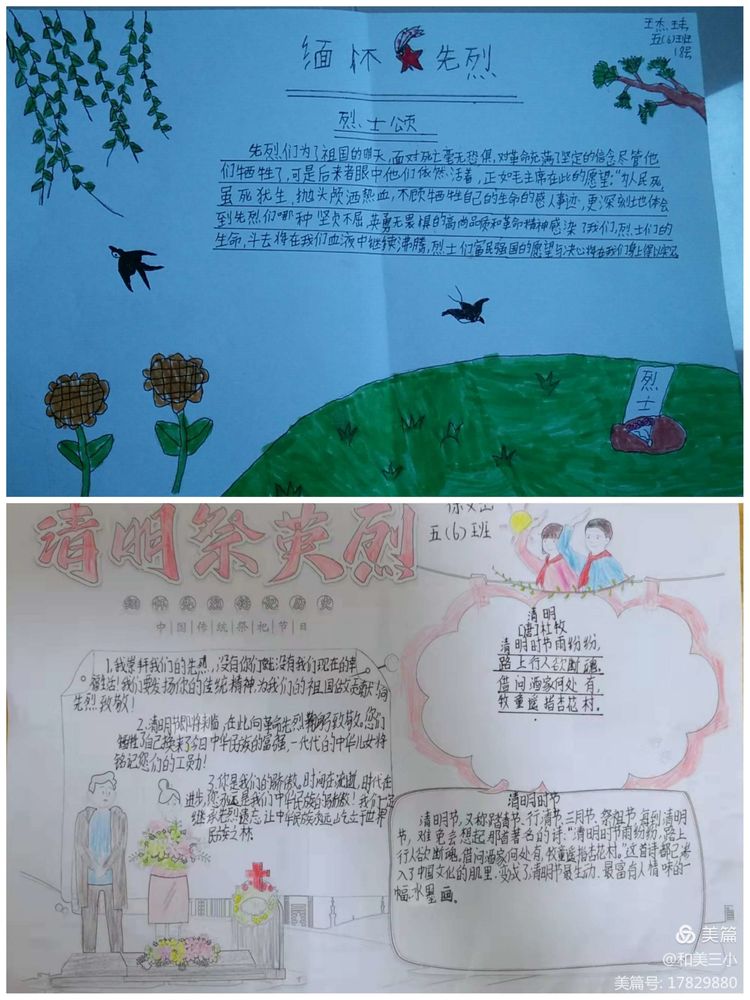 缅怀先烈
五(6)班
烈士颂
先烈们为了祖国的明天，面对死亡毫无恐惧，对革命充满了坚定的信念尽管他
们牺牲了，可是后来者眼中他们依然活着，正如毛主席在此的愿望："为人民死，
虽死犹生，抛头颅洒热血，不顾牺牲自己的生命的感人事迹，更深刻地体会
到先烈们哪种坚贞不屈，英勇无畏惧的高尚品质和革命精神感染了我们，烈士们的
生命，斗去将在我们血液中继续沸腾，烈士们富民强国的愿望与决心将在我们身上得以实现
烈
士
清明祭英烈
五(6)班
缅怀先烈铭记历史
中国|传统|祭祀|节日
1.我崇拜我们的先烈，没有你们就没有我们现在的幸
福生活!我们要发扬你的佳统精神，为我们的祖国做贡献向
先烈致敬!
2.清明节即将来临，在此向革命先烈鞠躬致敬。您们
牺牲了自己换来了今日中华民族的富强，一代代的中华儿女将
铭记您们的工员力!
3.你是我们的骄傲。时间在流逝，时代在
进步，您永远是我们中华民族的骄傲!我们一定
继承先烈遗志，让中华民族永远屹立于世界
民族之林。
清明
[唐]杜牧
清明时节雨纷纷，
路上行人欲断魂。
借问酒家何处有，
牧童遥指杏花村。
清明时节
清明节，又称踏青节、行清节、三月节、祭祖节，每到清明
节，难免会想起那首著名的诗："清明时节雨纷纷，路上
行人欲断魂。借问酒家何处有，牧童遥指杏花村。"这首诗都已渗
入了中国文化的肌里，变成了清明节最生动、最富有人情味的一
幅水墨画。
美篇
@和美三小
美篇号: 17829880